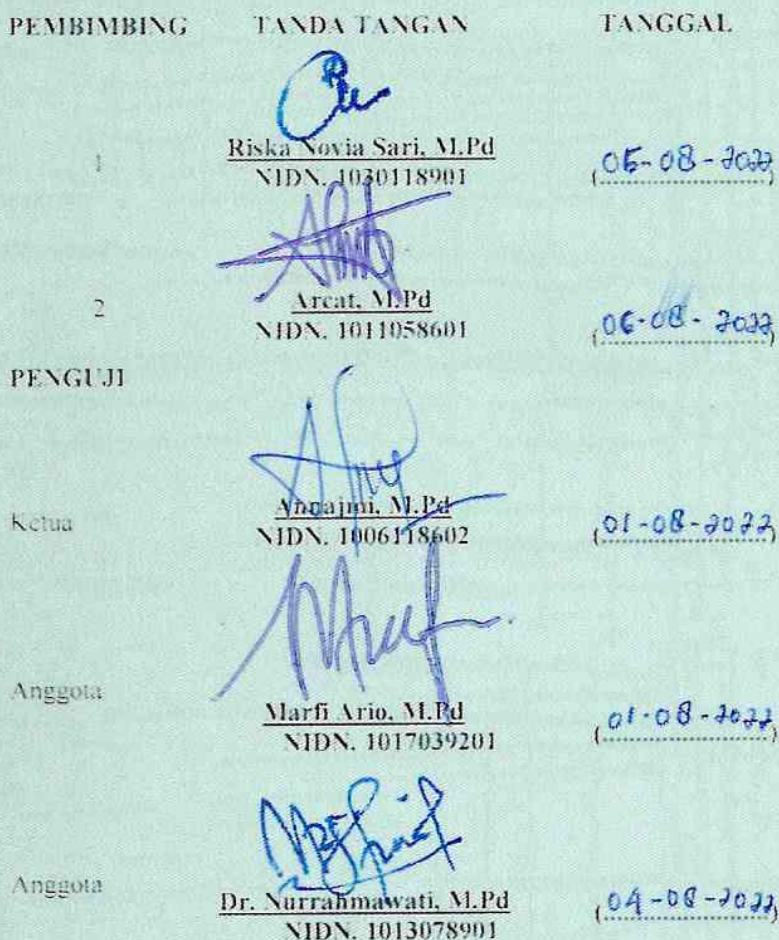 PEMBIMBING TANDA TANGAN TANGGAL
1 Riska Novia Sari, M.Pd
NIDN. 1030118901 (05-08-2022)
2 Arcat, M.Pd
NIDN. 1011058601 (06-08-2022)
PENGUJI
Ketua Annajmi, M.Pd
NIDN. 1006118602 (01-08-2022)
Anggota Marfi Ario, M.Pd
NIDN. 1017039201 (01-08-2022)
Anggota Dr. Nurrahmawati, M.Pd
NIDN. 1013078901 (04-08-2022)